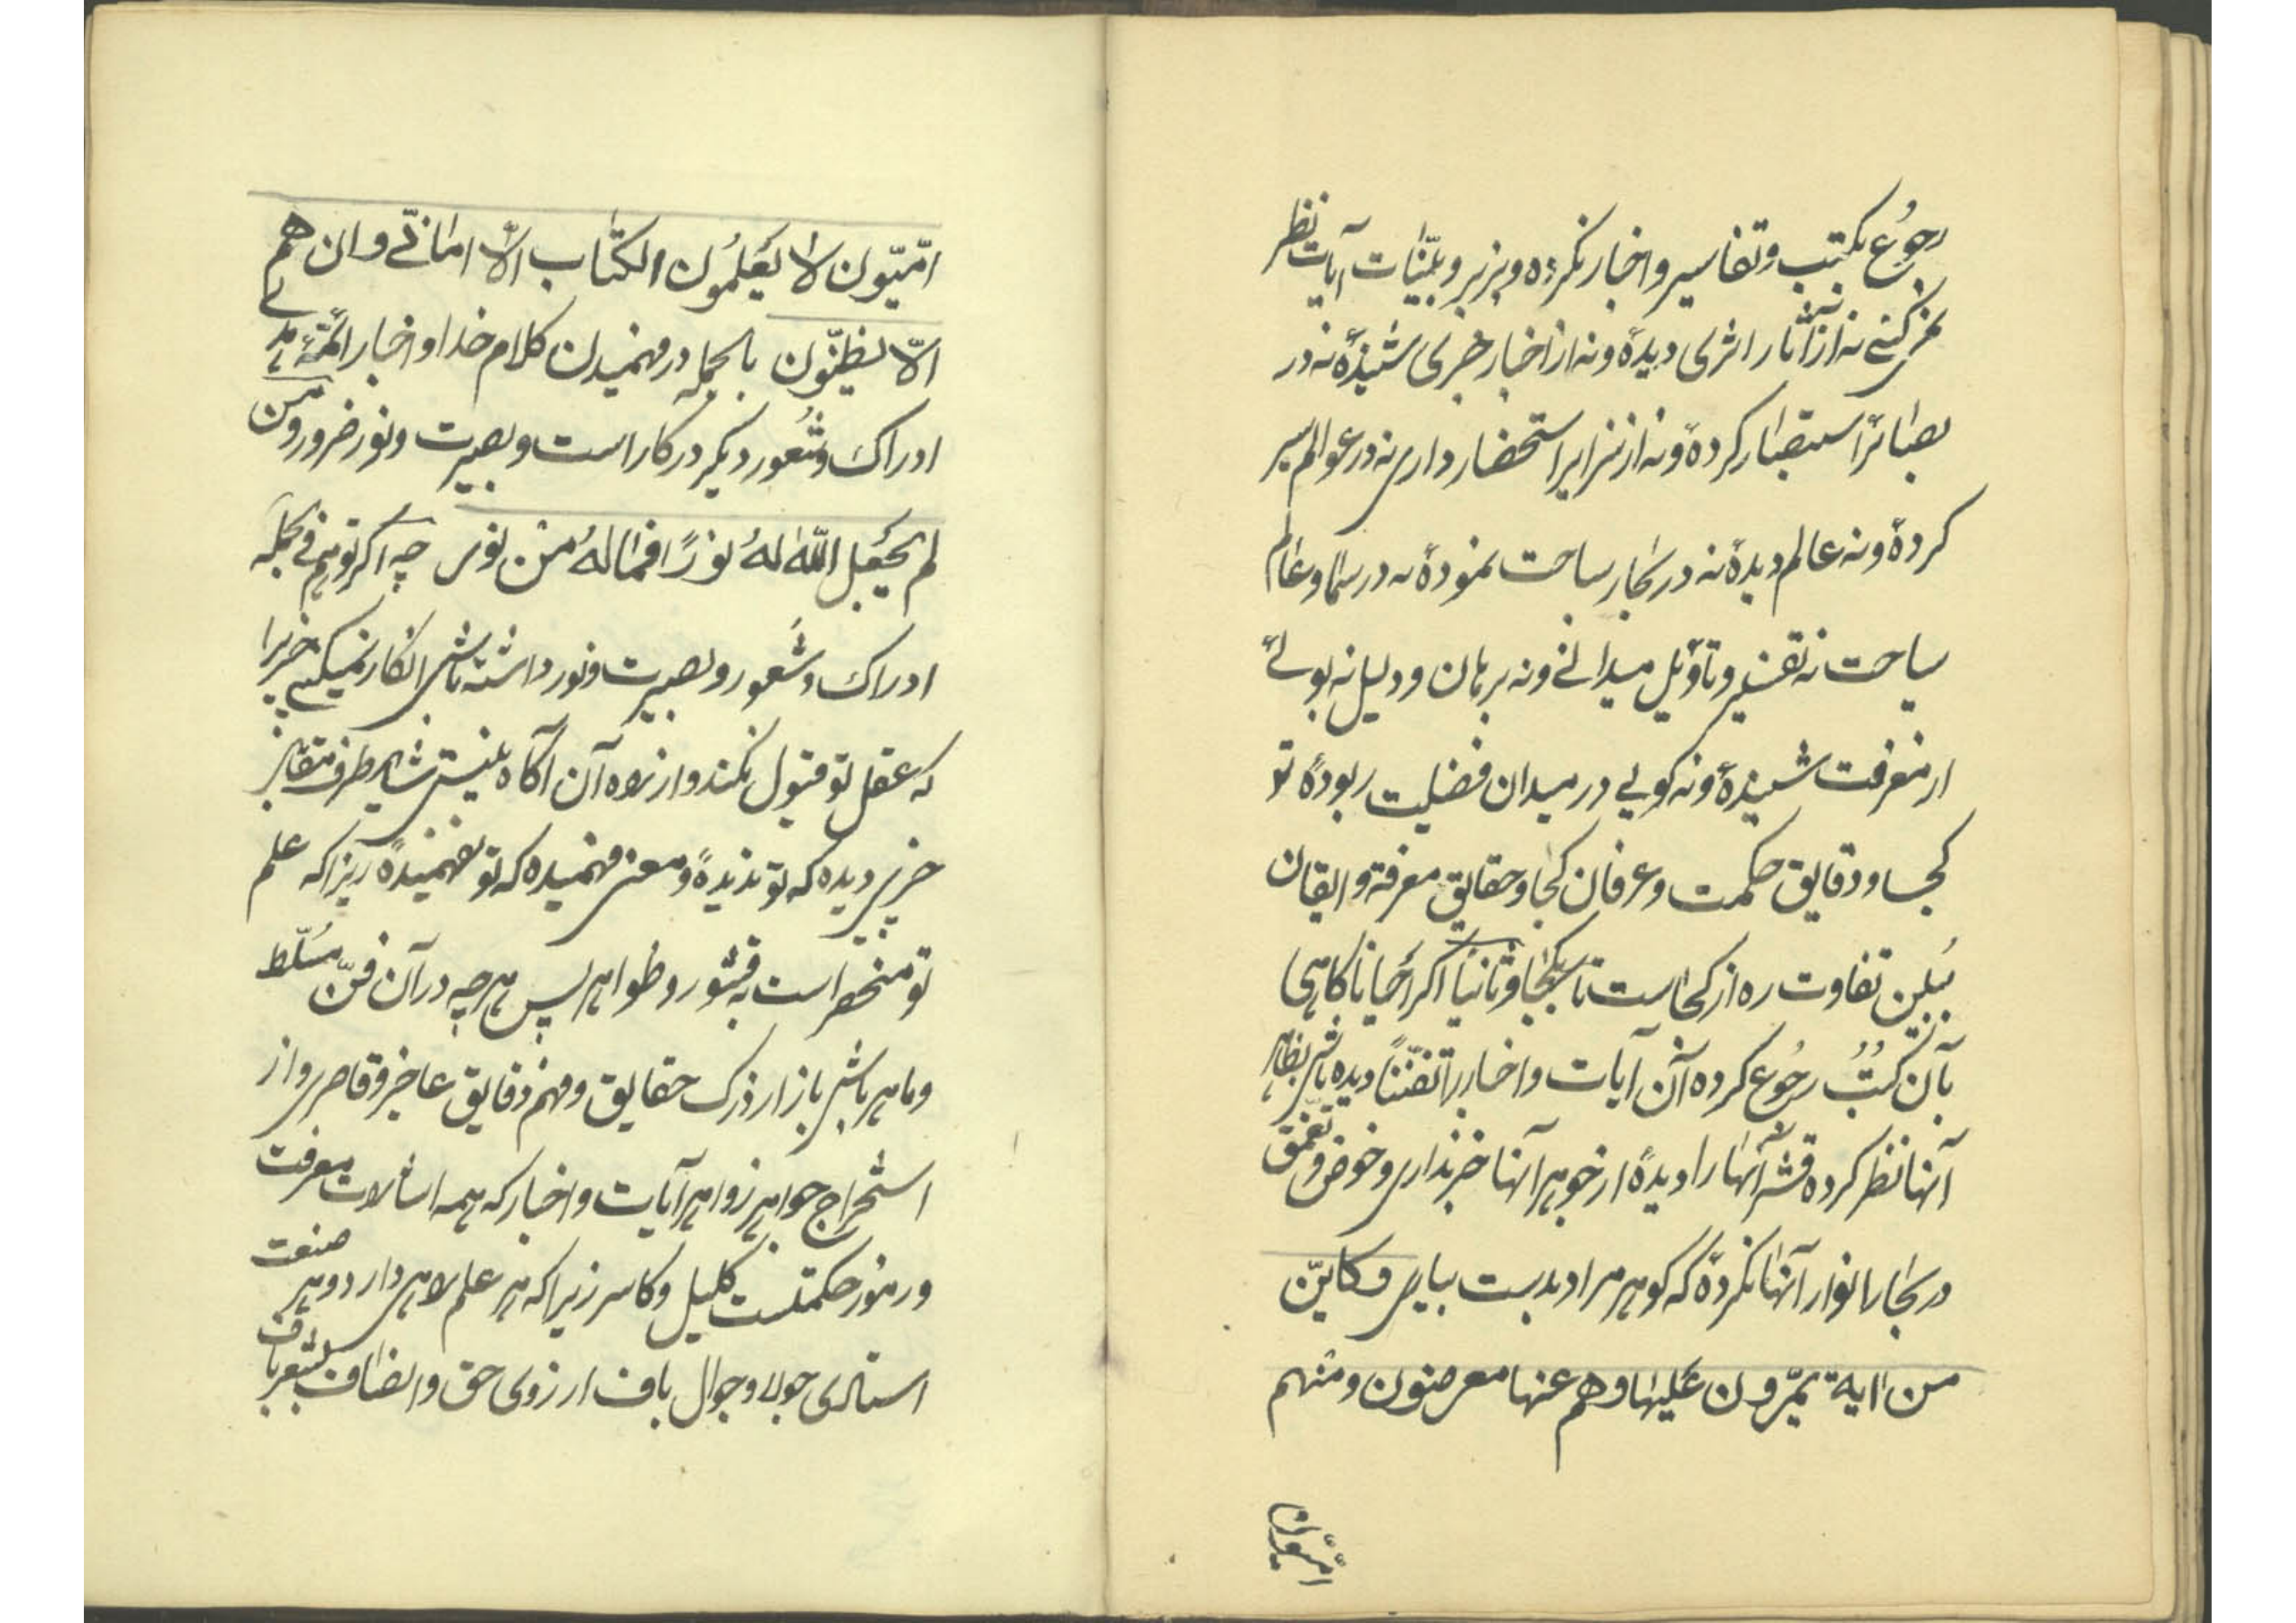 رجوع بکتب و تفاسیر و اخبار نکرده و بزبر و بیّنات آیات نظر
نمیکنی نه از آثار اثری دیدهٔ و نه از اخبار خبری شنیدهٔ نه در
بصائر استبصار کردهٔ و نه از سرایر استحضار داری نه در عوالم سیر
کردهٔ و نه عالم دیدهٔ نه در بحار سباحت نمودهٔ نه در سما و عالم
سیاحت نه تفسیر و تاویل میدانی و نه برهان و دلیل نه بوئی
از معرفت شنیدهٔ و نه کویی در میدان فضلیت ربودهٔ تو
کجا و دقایق حکمت و عرفان کجا و حقایق معرفة و ایقان
ببین تفاوت ره از کجاست تا بکجا و ثانیاً اکر احیانا کاهی
بآن کتب رجوع کرده آن آیات و اخبار را تفنّناً دیده باشی بظاهر
آنها نظر کرده قشر آنها را دیدهٔ از جوهر آنها خبر نداری و خوض و تعمّق
در بحار انوار آنها نکردهٔ که کوهر مراد بدست بیاری و کایّن
من اٰیة یمرّون علیها و هم عنها معرضون و منهم
امّیّون
امّیّون لا یعلمون الکتاب الّا امانیّ و ان هم
الّا یظنّون بالجمله در فهمیدن کلام خدا و اخبار ائمّهٔ هدی
ادراک و شعور دیکر در کار است و بصیرت و نور ضرور و من
لم یجعل اللّه له نوراً فما له من نور چه اکر تو هم فی الجمله
ادراک و شعور و بصیرت و نور داشته باشی انکار نمیکنی چیزیرا
که عقل تو قبول نکند و از راه آن آکاه نیستی شاید طرف مقابل
چیزی دیده که تو ندیدهٔ و معنی فهمیده که تو نفهمیدهٔ زیرا که علم
تو منحصر است به قشور و ظواهر پس هر چه در آن فنّ مسلّط
و ماهر باشی باز از درک حقایق و فهم دقایق عاجز و قاصری و از
استخراج جواهر زواهر آیات و اخبار که همه اشارات معرفت
و رموز حکمتست کلیل و کاسر زیرا که هر علم راهی دارد و هر صنعت
استادی جولا و جوال باف از روی حق و انصاف شعرباف